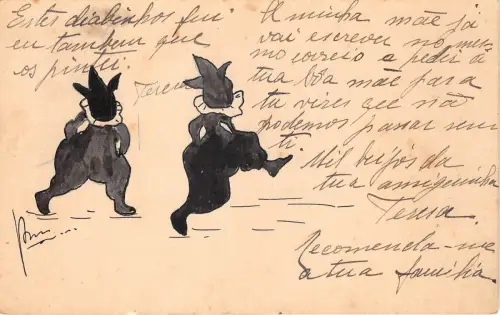 Estes diabinhos fui
eu tambem que
os pintei.
Teresa
A minha mãe já
vai escrever no mes-
mo correio a pedir á
tua Bôa mãe para
tu vires cá não
podemos passar sem
ti.
Mil beijos da
tua amiguinha
Teresa.
Recomenda-me
a tua familia.